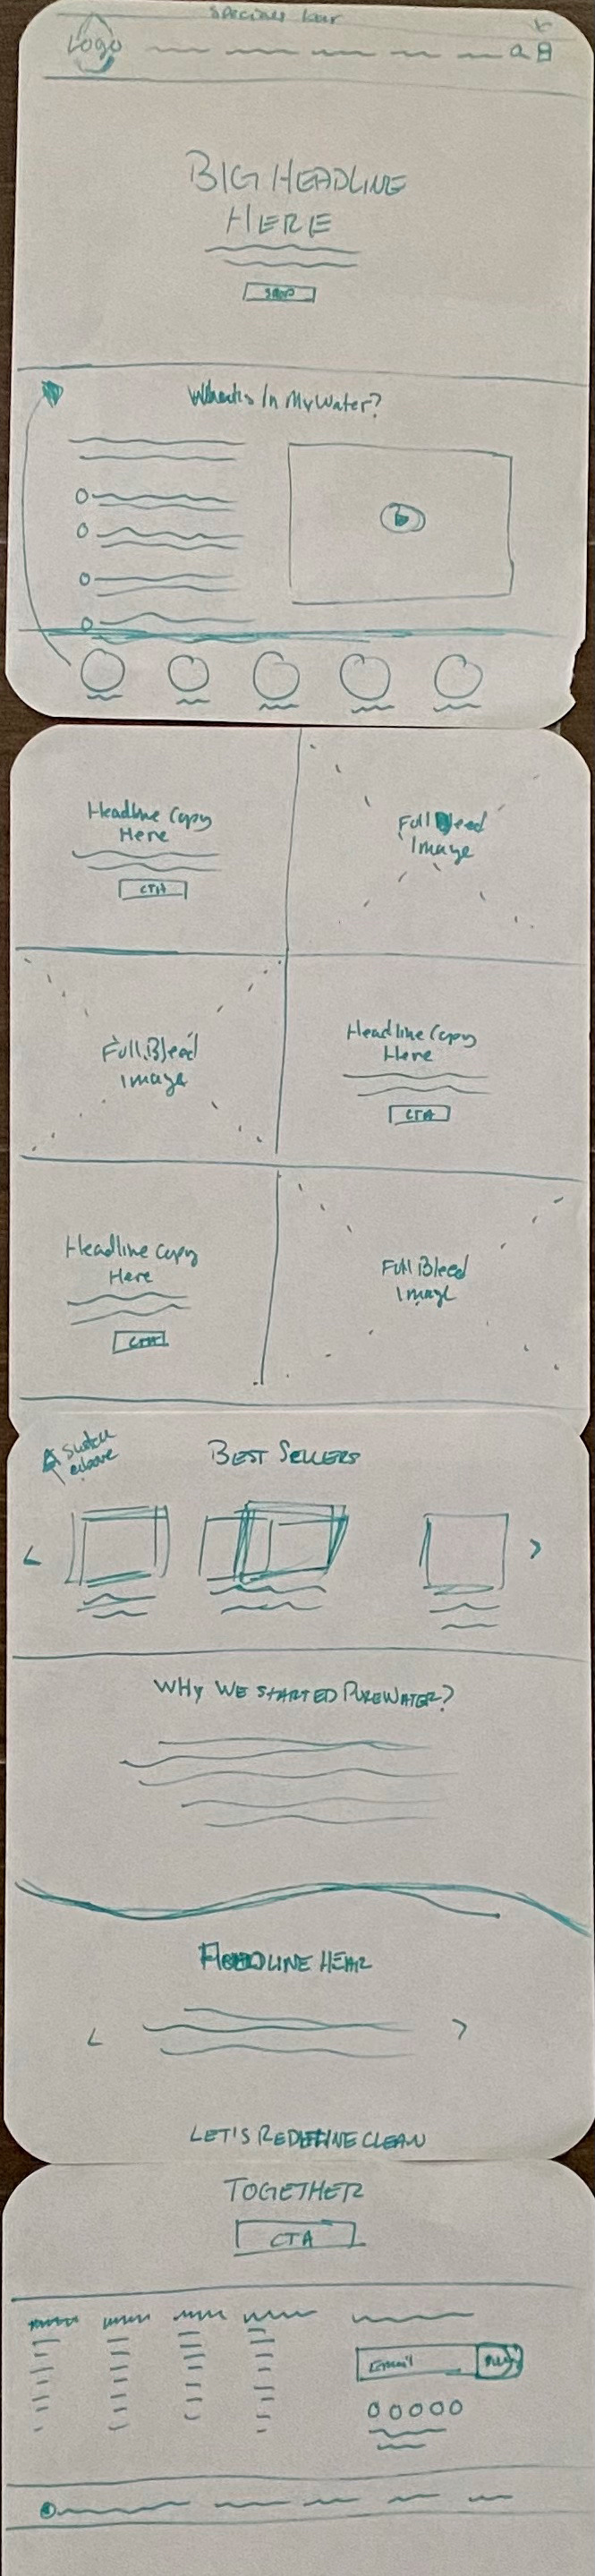 Specials bar
x
Logo
BIG HEADLINE
HERE
SHOP
What's In My Water?
Headline Copy
Here
CTA
Full Bleed
Image
Full Bleed
Image
Headline Copy
Here
CTA
Headline Copy
Here
CTA
Full Bleed
Image
Switch
above
BEST SELLERS
< >
WHY WE STARTED PUREWATER?
LINE HEAR
< >
LET'S REDEFINE CLEAN
TOGETHER
CTA
Email